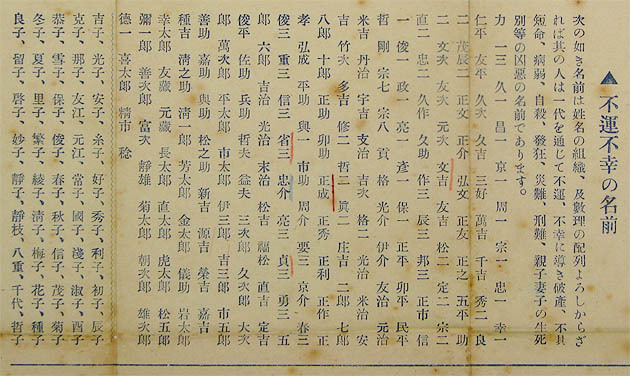 ▲不運不幸の名前
次の如き名前は姓名の組織、及數理の配列よろしからざ
れば其の人は一代を通じて不運、不幸に導き破產、不具
短命、病弱、自殺、發狂、災難、刑難、親子妻子の生死
別等の凶惡の名前であります。
力一 三力 久一 昌一 京一 周一 宗一 忠一 幸一
仁平 友平 久次 久吉 三好 萬吉 千吉 秀二 良
二 茂 辰二 正文 正介 弘文 正友 正之 五平 助
二 文次 友次 元次 文吉 友吉 松二 定二 宗二
直二 忠二 久作 久助 作三 辰三 邦三 正市 信
一 俊一 政一 亮一 彥一 保一 正平 卯平 民平
哲 剛 宗七 宗八 貢 格 光介 伊介 友治 元治
米吉 丹治 宇吉 支治 吉次 格二 光治 米治 安
吉 竹次 多吉 修二 哲二 眞二 庄吉 二郎 七郎
八郎 十郎 正助 卯助 正成 正秀 正利 正作 正
孝 弘成 平助 與一 市助 周介 要三 京介 春三
俊三 重三 信三 省三 忠介 亮三 貞三 勇三 五
郎 六郎 吉治 光治 末治 松吉 福松 直吉 定吉
俊平 佐助 兵助 哲夫 益夫 三次郎 久次郎 大次
郎 萬次郎 平太郎 市太郎 伊三郎 吉三郎 市五郎
善助 嘉助 與助 松之助 新吉 源吉 榮吉 嘉吉
種吉 淸之助 淸一郎 芳太郎 金太郎 儀助 岩太郎
幸太郎 友藏 元藏 長太郎 直太郎 虎太郎 松五郎
彌一郎 善次郎 富次 靜雄 菊太郎 朝次郎 雄次郎
德一 喜太郎 精市 稔
吉子、光子、安子、糸子、好子、秀子、利子、初子、辰子
克子、那子、友江、元江、常子、國子、淺子、淑子、酉子
冬子、雪子、保子、俊子、春子、秋子、信子、茂子、菊子
冬子、夏子、里子、繁子、綾子、淸子、梅子、花子、種子
良子、留子、啓子、妙子、靜子、靜枝、八重、千代、哲子